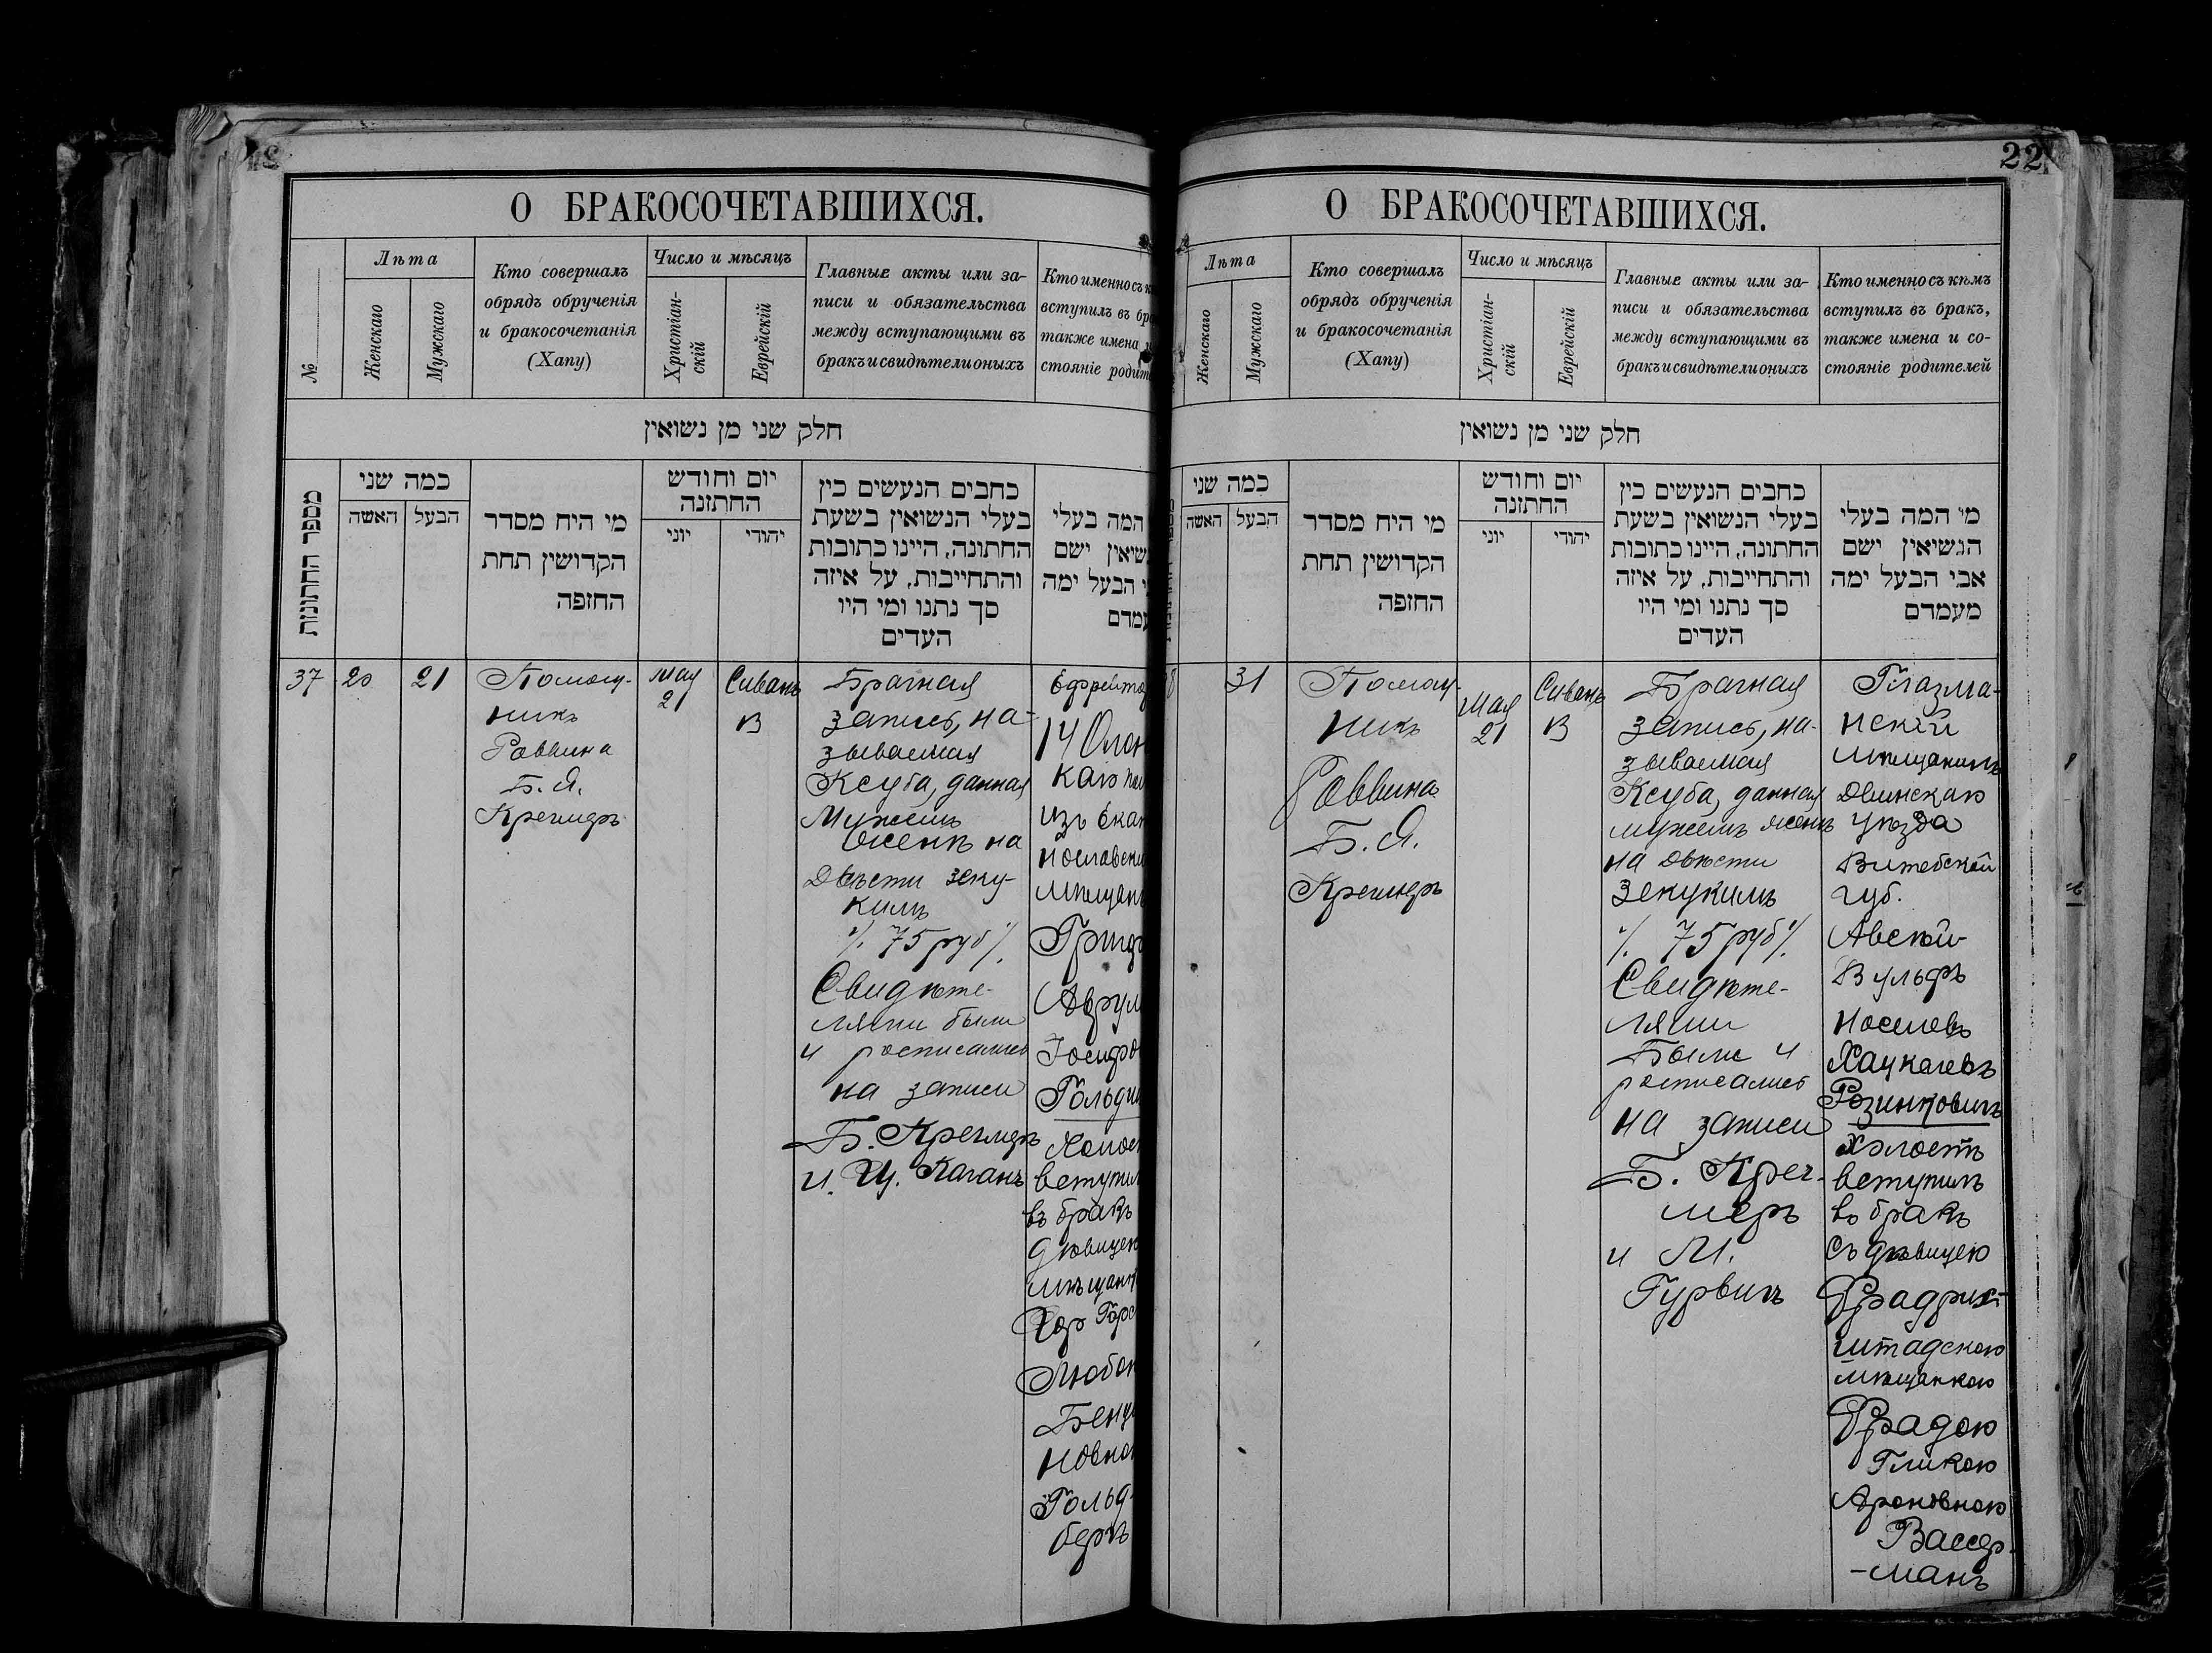 О БРАКОСОЧЕТАВШИХСЯ.
№
Лѣта
Женскаго
Мужскаго
Кто совершалъ
обрядъ обрученія
и бракосочетанія
(Хапу)
Число и мѣсяцъ
Христіан-
скій
Еврейскій
Главные акты или за-
писи и обязательства
между вступающими въ
бракъ и свидѣтели оныхъ
Кто именно съ
вступилъ въ
также имена
стояніе
חלק שני מן נשואין
מספר החתונות
כמה שני
האשה
הבעל
מי היח מסדר
הקדושין תחת
החזפה
יום וחודש
החתזנה
יוני
יהודי
כחבים הנעשים כין
בעלי הנשואין בשעת
החתונה, היינו כתובות
והתחייבות, על איזה
סך נתנו ומי היו
העדים
המה בעלי
ישם
הבעל ימה
37
20
21
Помощ-
никъ
Раввина
Б. Я.
Кремеръ
Мая
21
Сиванъ
В
Брачная
запись, на-
зываемая
Ксуба, данная
Мужемъ
женѣ на
Двѣсти зеку-
кимъ
⁒ 75 руб ⁒
Свидѣте-
лями были
и росписались
на записи
Б. Кремеръ
и Ц. Каганъ
14
изъ
въ бракъ
О БРАКОСОЧЕТАВШИХСЯ.
22
Лѣта
Женскаго
Мужскаго
Кто совершалъ
обрядъ обрученія
и бракосочетанія
(Хапу)
Число и мѣсяцъ
Христіан-
скій
Еврейскій
Главные акты или за-
писи и обязательства
между вступающими въ
бракъ и свидѣтели оныхъ
Кто именно съ кѣмъ
вступилъ въ бракъ,
также имена и со-
стояніе родителей
חלק שני מן נשואין
כמה שני
האשה
הבעל
מי היח מסדר
הקדושין תחת
החזפה
יום וחודש
החתזנה
יוני
יהודי
כחבים הנעשים כין
בעלי הנשואין בשעת
החתונה, היינו כתובות
והתחייבות, על איזה
סך נתנו ומי היו
העדים
מי המה בעלי
הגשיאין ישם
אבי הבעל ימה
מעמדם
31
Помощ-
никъ
Раввина
Б. Я.
Кремеръ
Мая
21
Сиванъ
В
Брачная
запись, на-
зываемая
Ксуба, данная
мужемъ женѣ
на двѣсти
зекукимъ
⁒ 75 руб ⁒
Свидѣте-
лями
Были и
росписались
на записи
и М.
Гурвичъ
Глазма-
нскій
мѣщанинъ
Двинскаго
уѣзда
Витебской
губ.
Вульфъ
Хацкелевъ
холостъ
вступилъ
въ бракъ
съ дѣвицею
Фрадрих-
штадскою
мѣщанкою
Фрадою
Гликою
Ароновною
Вассер-
-манъ